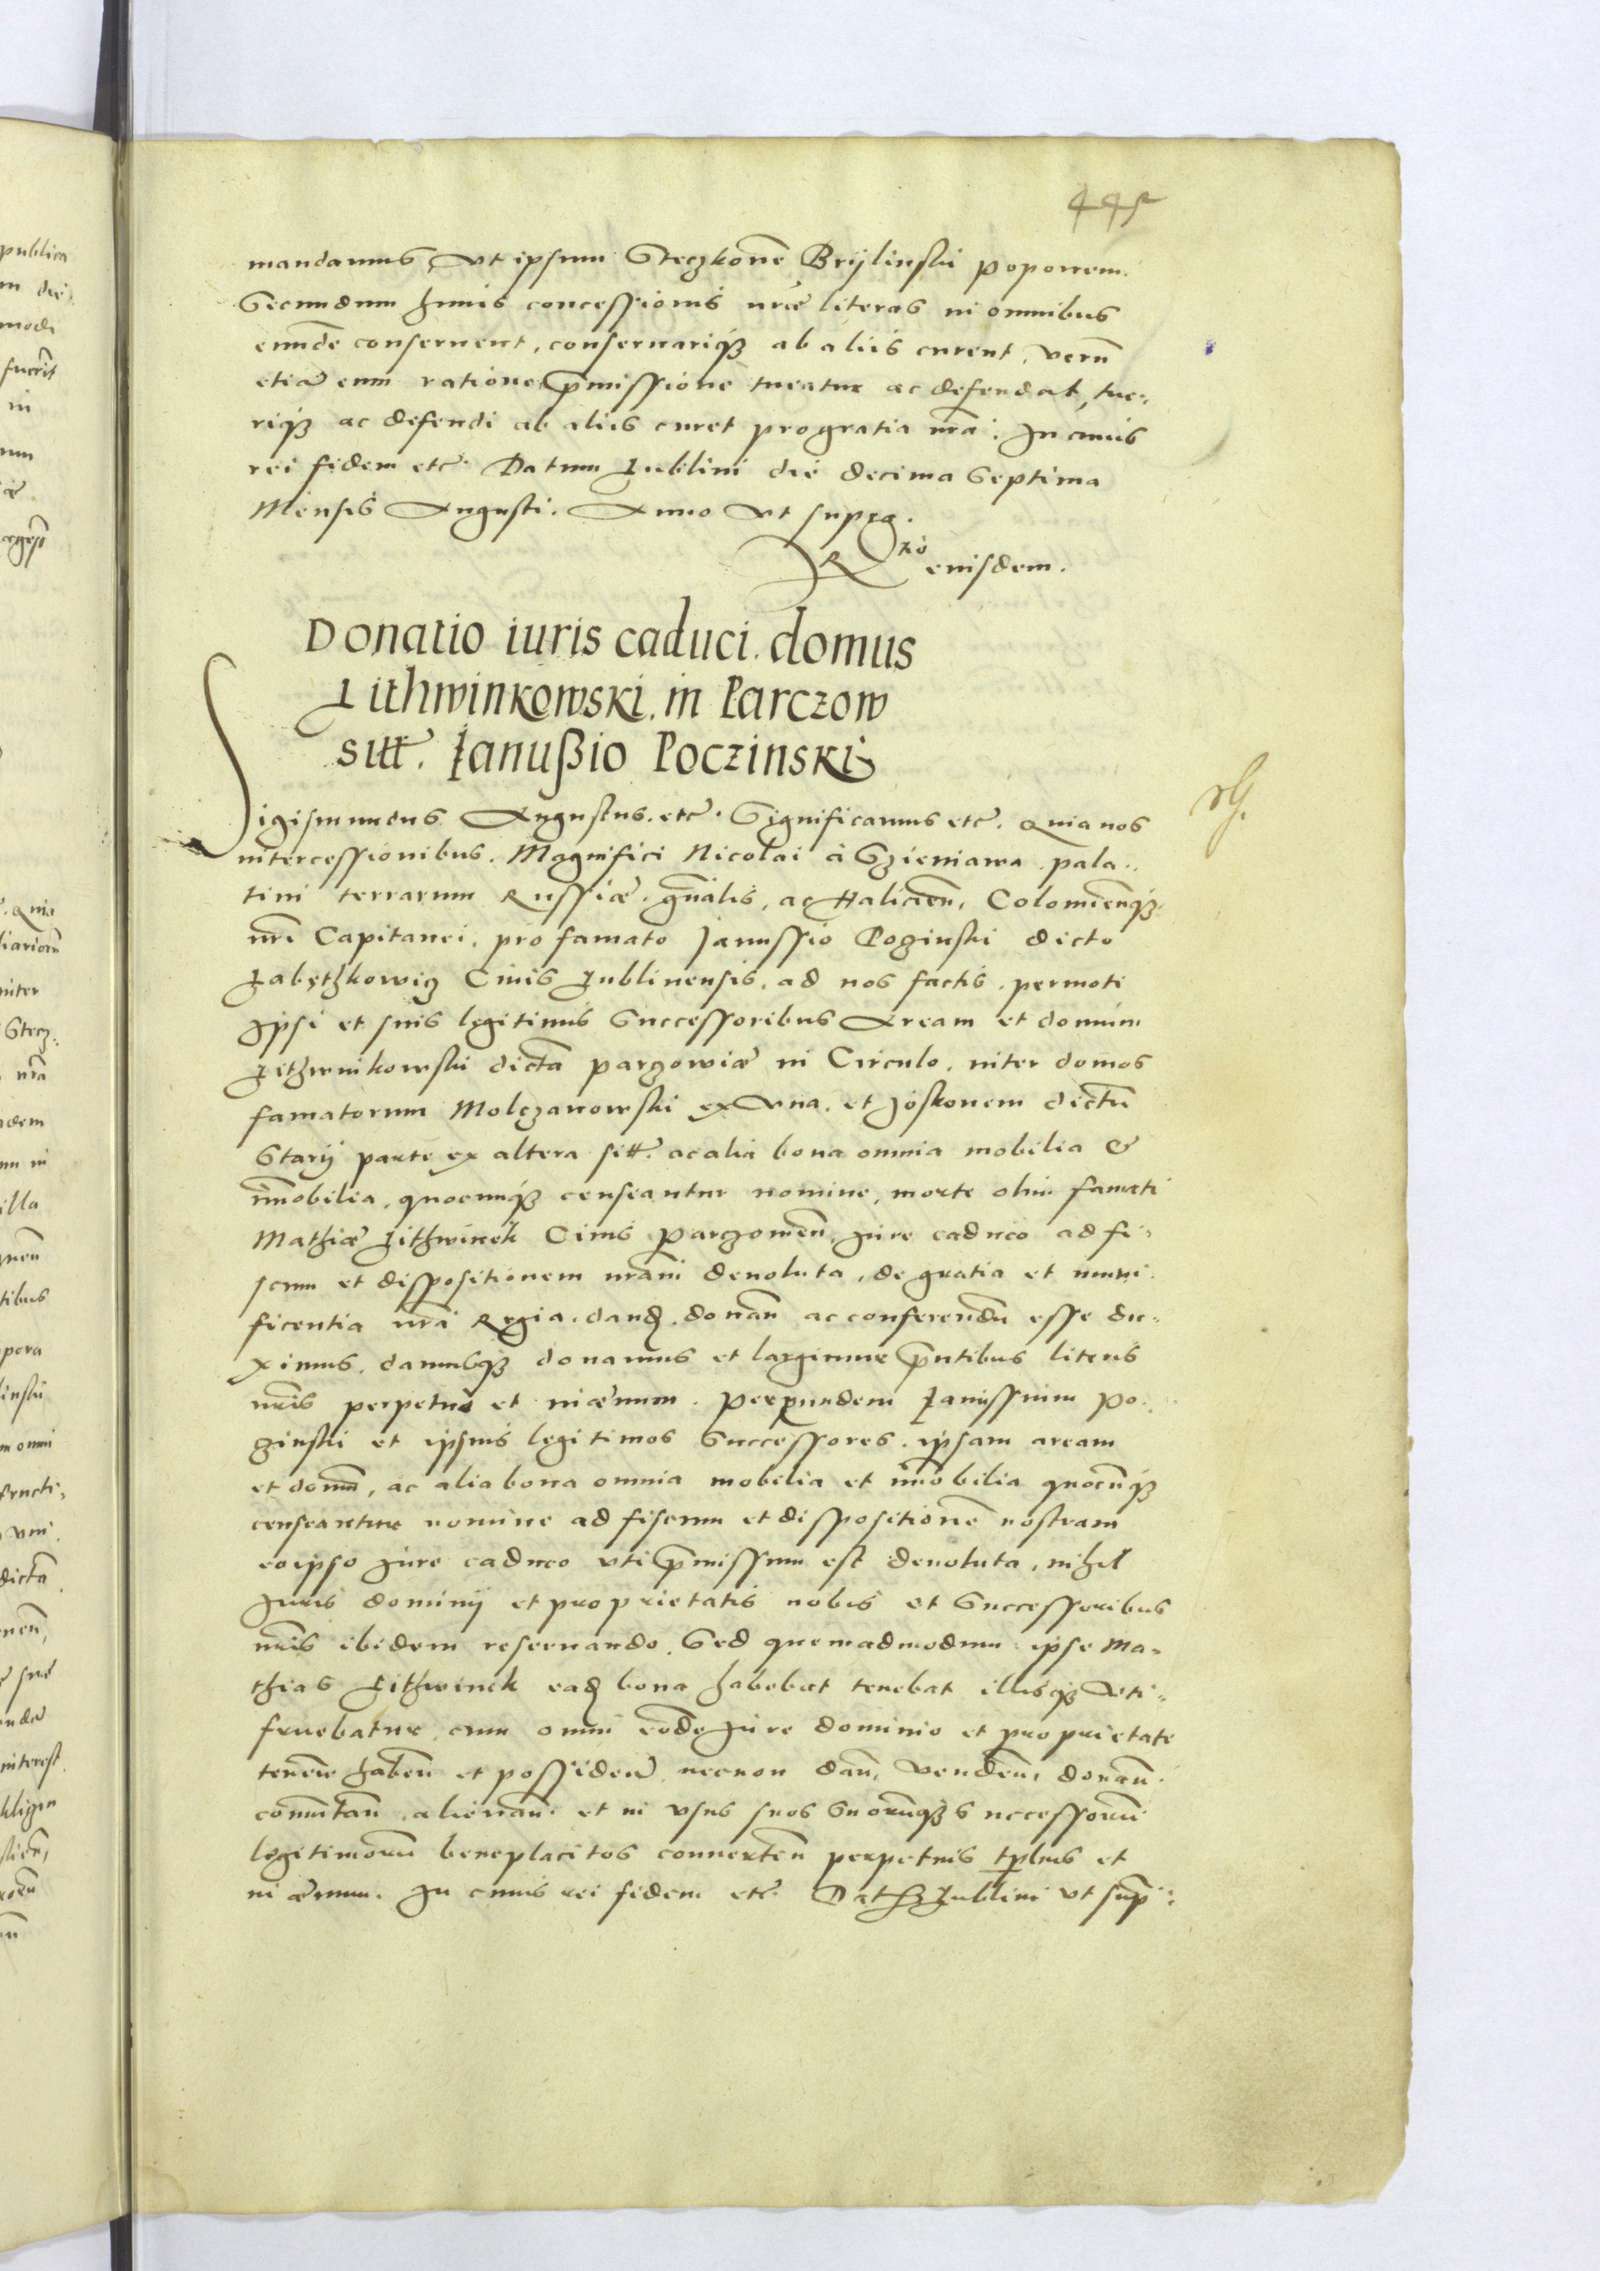 445
mandamus, vt ipsum Steczkonē Brijlinski poponem
Secundum huius concessionis nr̄æ literas in omnibus
eundē conseruent, conseruariq3 ab aliis curent, verū
etiā eum ratione p̄missione tueatur ac defendat, tue-
riq3 ac defendi ab aliis curet pro gratia nr̄a. In cuius
rei fidem etc. Datum Lublini die decima Septima
Mensis Augusti. Anno vt supra.
R^tio eiusdem.
Donatio iuris caduci domus
Lithwinkowski in Parczow
sitæ. Janußio Poczinski
Sigismundus Augustus etc. Significamus etc. Quia nos
intercessionibus Magnifici Nicolai à Szieniawa pala-
tini terrarum Russiæ gn̄alis, ac Haliciēn, Colomiēnq3
nr̄i Capitanei, pro famato Janussio Poginski dicto
Labęthkowicz Ciuis Lublinensis, ad nos factis, permoti
Ipsi et suis legitimis Successoribus Aream et domum
Lithwinkowski dictā parzowiæ in Circulo, inter domos
famatorum Molczanowski ex vna, et Joskonem dictū
Starij parte ex altera sitā ac alia bona omnia mobilia &
im̄obilia, quocunq3 censeantur nomine, morte olim famati
Mathiæ Lithwinek Ciuis Parzowiēn, Jure caduco ad fi-
scum et dispositionem nr̄am deuoluta, de gratia et muni-
ficentia nr̄a Regia dand, donān ac conferendū esse du-
ximus, damusq3 donamus et largimur p̄ntibus literis
nr̄is perpetuo et in æuum. Per eundem Janussium Po-
ginski et ipsius legitimos Successores, ipsam aream
et domū, ac alia bona omnia mobilia et im̄obilia quocūq3
censeantur nomine ad fiscum et dispositionē nostram
eo ipso Jure caduco vti p̄missum est deuoluta, nihil
Juris dominij et proprietatis nobis et Successoribus
nr̄is ibidem reseruando. Sed quemadmodum ipse Ma-
thias Lithwinek ead bona habebat tenebat illisq3 vti-
fruebatur, cum omni eodē Jure dominio et proprietate
tenēn habēn et possiden, necnon dān, vendēn, donān
com̄utān alienān, et in vsus suos Suorūq3 Successorū
legitimorū beneplacitos conuertēn perpetuis tp̄bus et
in æuum. In cuius rei fidem etc. Dat Lublini vt supr̄